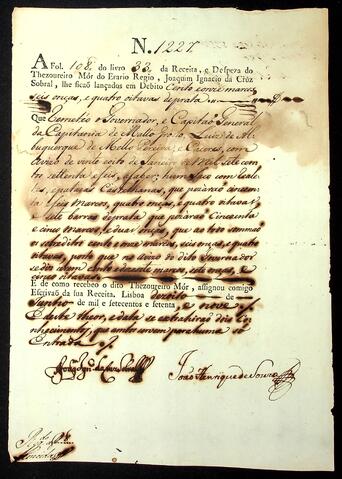 N. 1227
A Fol. 108. do livro 33. da Receita, e Despeza do
Thezoureiro Mór do Erario Regio, Joaquim Ignacio da Crúz
Sobral, lhe ficaõ lançados em Debito Cento eonze marcos
seis onças, e quatro oitavas de prata
Que Remeteo o Governador, e Capitaõ General
da Capitania de Matto Groso, Luiz de Al-
buquerque de Mello Pereira, e Caceres, com
Avizo de vinte eoito de Janeiro de Mil sete cen-
tos settenta e seis, a saber; hum
e patacas Castelhanas, que pezaraõ cincoen-
ta seis marcos, quatro onças, e quatro oitavas,
e sete barras de prata que pezaraõ Cincoenta
e cinco marcos, e duas onças, que ao todo sommaõ
os cento e onze marcos, seis onças, e quatro
oitavas, posto que no avizo do dito Governador
se marcos, sete onças, e
oitavas.
E de como recebeo o dito Thezoureiro Mór, assignou comigo
Escrivaõ da sua Receita. Lisboa dezoito de
de mil e setecentos e setenta, e nove
E deste theor, e data se extrahiraõ dois Con-
hecimentos, que ambos servem para huma só
Entrada
Joaõ Henrique de Souza